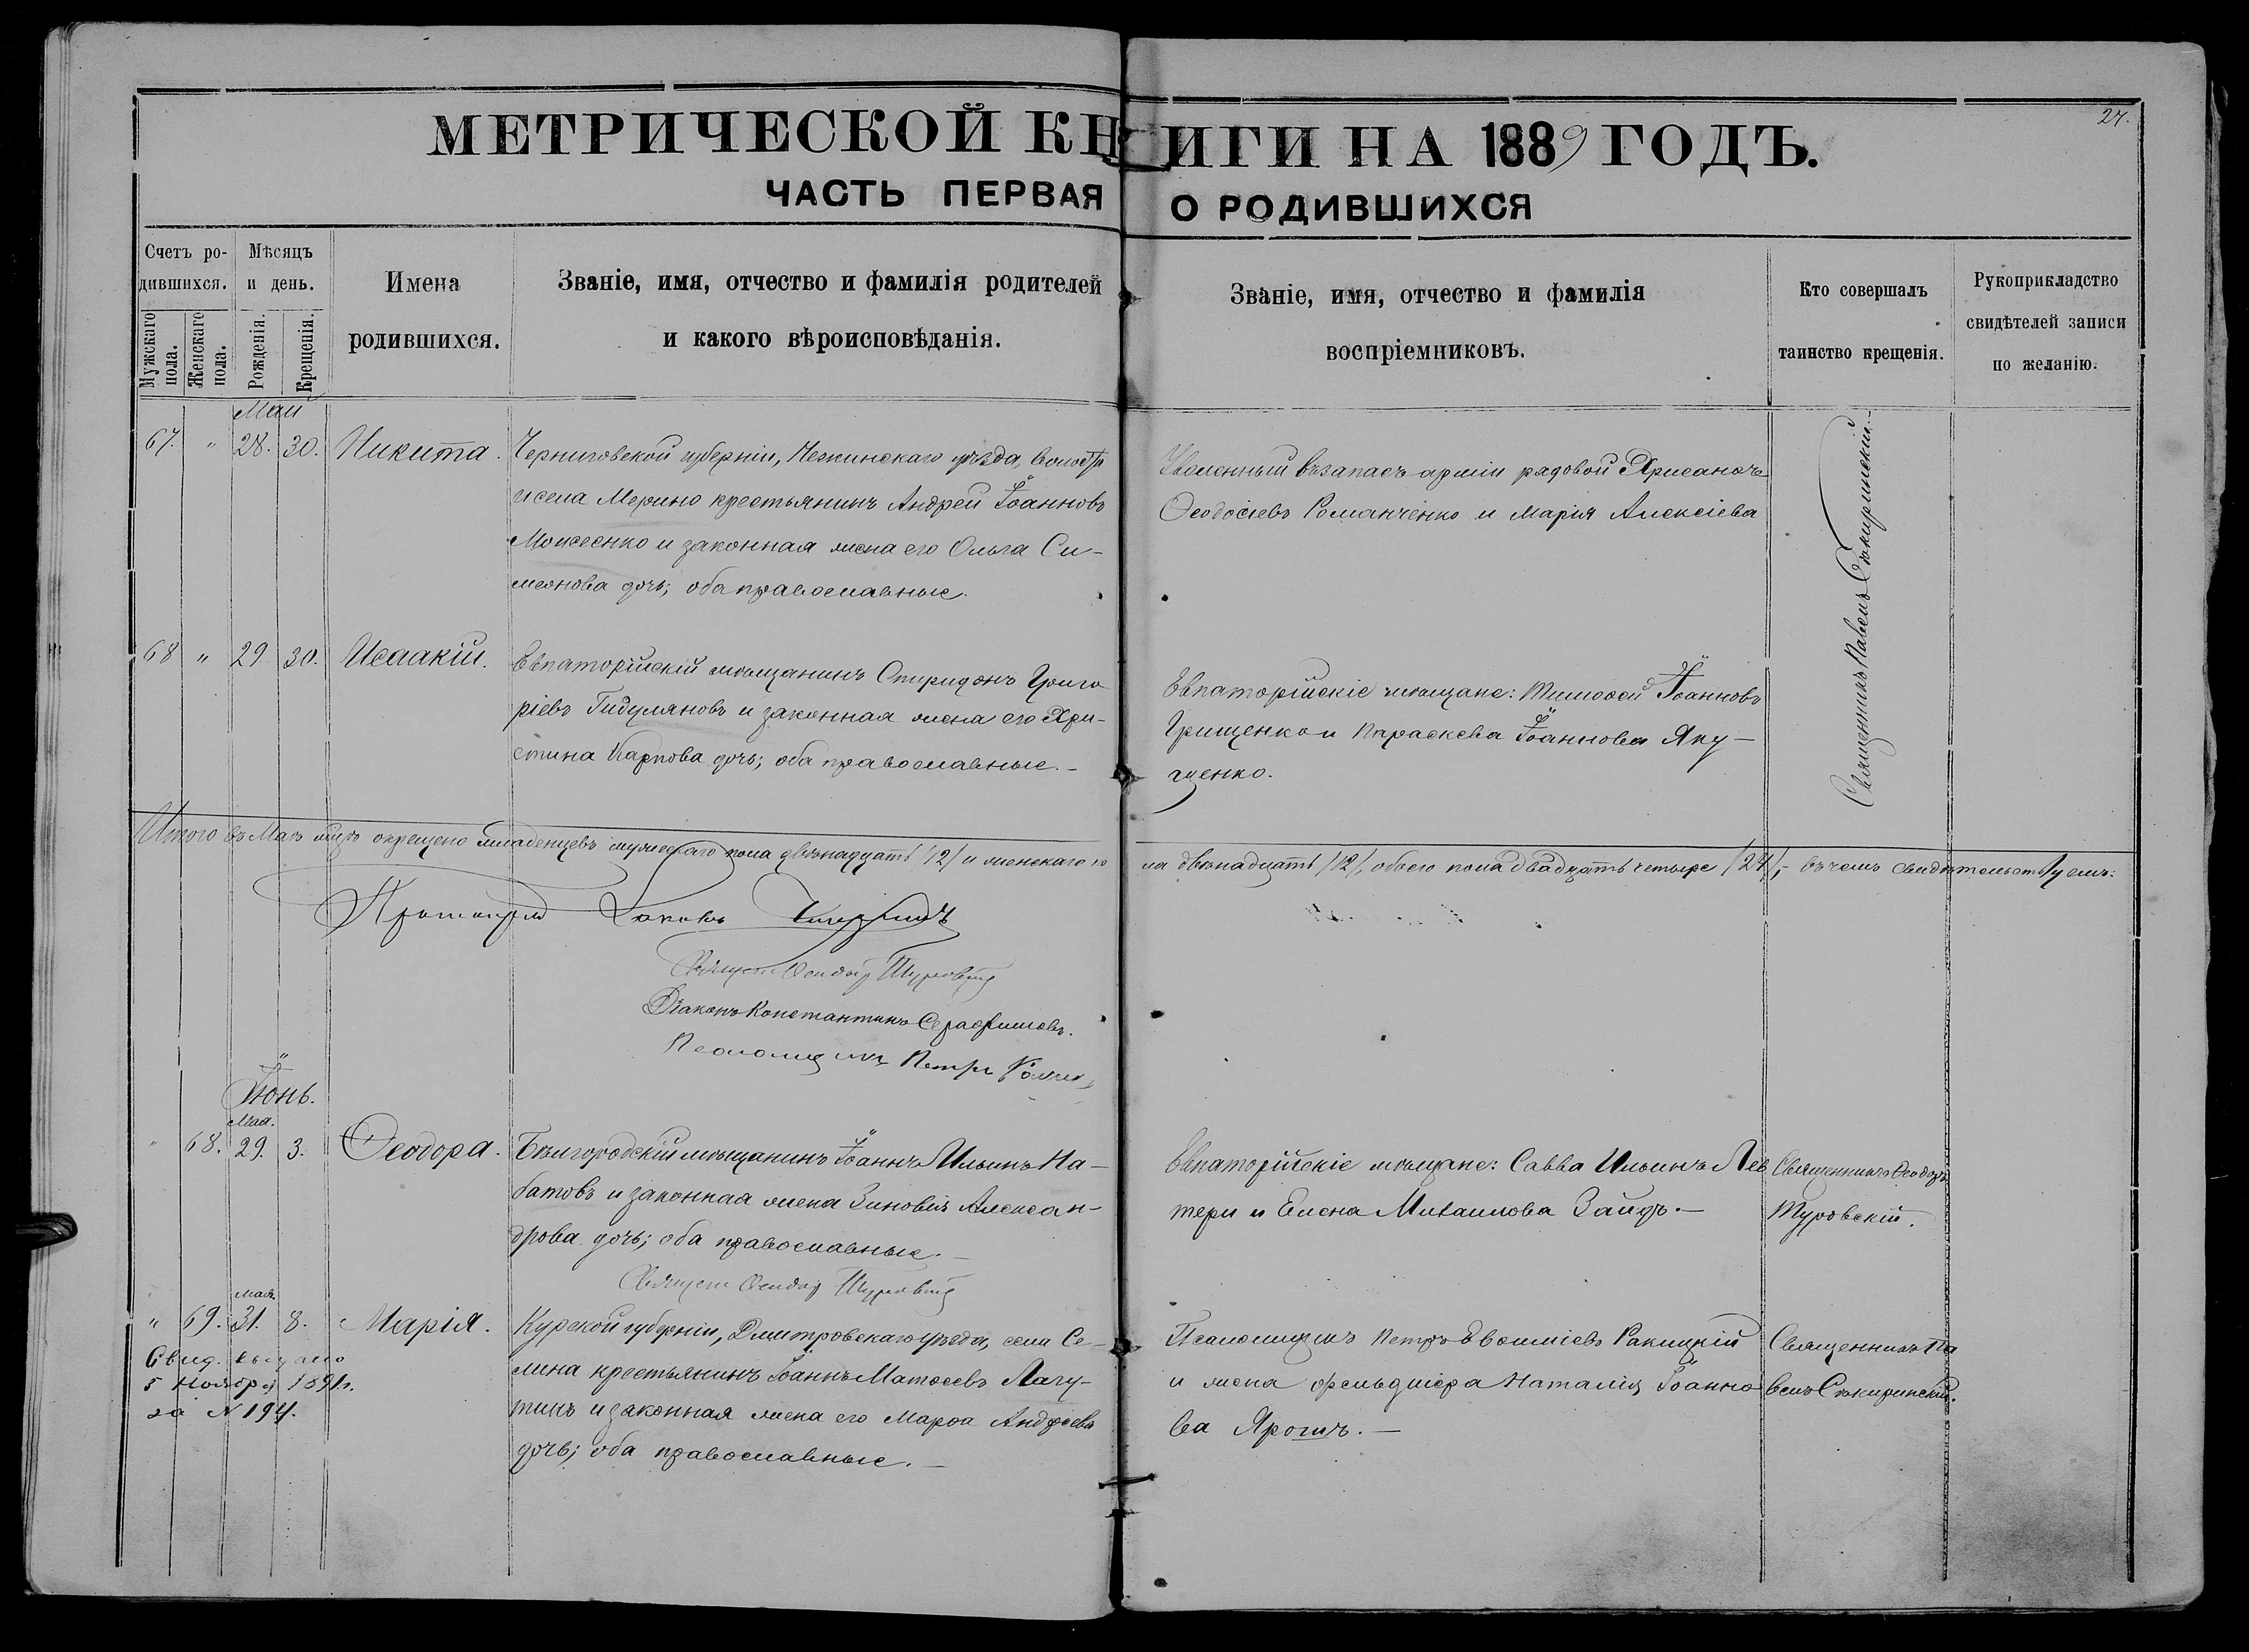 МЕТРИЧЕСКОЙ КНИГИ НА 1889 ГОДЪ.
27.
ЧАСТЬ ПЕРВАЯ О РОДИВШИХСЯ
Счетъ ро-
дившихся.
Мужскаго пола.
Женскаго пола.
Мѣсяцъ
и день.
Рожденія.
Крещенія.
Имена
родившихся.
Званіе, имя, отчество и фамилія родителей
и какого вѣроисповѣданія.
Званіе, имя, отчество и фамилія
воспріемниковъ.
Кто совершалъ
таинство крещенія.
Рукоприкладство
свидѣтелей записи
по желанію.
Май
67. " 28. 30. Никита.
Черниговской губерніи, Нежинскаго уѣзда, волости
и села Мерино крестьянинъ Андрей Іоанновъ
Моисеенко и законная жена его Ольга Си-
меонова дочь; оба православные.
Уволенный въ запасъ арміи рядовой Хрисанѳъ
Ѳеодосіевъ Романченко и Марія Алексіева
Священникъ Павелъ Сѣкиринскій.
68 " 29 30. Исаакій.
Евпаторійскій мѣщанинъ Спиридонъ Григо
ріевъ Гидуляновъ и законная жена его Хри-
стина Карпова дочь; оба православные.-
Евпаторійскіе мѣщане: Тимоѳей Іоанновъ
Грищенко и Параскева Іоаннова Яку-
щенко.
Итого въ Маѣ мцѣ окрещено младенцевъ мужескаго пола двѣнадцать /12/ и женскаго по
ла двѣнадцать /12/, обоего пола двадцать четыре /24/,- въ чемъ свидѣтельствуемъ:
Протоіерей Іаковъ
Священ. Ѳеодоръ Туровскій
Діаконъ Константинъ Серафимовъ.
Псаломщикъ Петръ
Іюнь.
Мая.
" 68. 29. 3. Ѳеодора.
Бѣлгородскій мѣщанинъ Іоаннъ Ильинъ На-
батовъ и законная жена Зиновія Алексан-
дрова дочь; оба православные.-
Евпаторійскіе мѣщане: Савва Ильинъ Лев
тери и Елена Михаилова Зайдъ.-
Священникъ Ѳеодоръ
Туровскій.
Священ. Ѳеодоръ Туровскій
мая.
" 69. 31. 8. Марія.
Курской губерніи, Дмитровскаго уѣзда, села Се-
лина крестьянинъ Іоаннъ Матѳеевъ Лагу-
тинъ и законная жена его Марѳа Андреева
дочь; оба православные.-
Псаломщикъ Петръ Евѳиміевъ Ракицкій
и жена фельдшера Наталія Іоанно
ва Ярошъ.-
Священникъ Па
велъ Сѣкиринскій.
Свид. выдано
5 Ноября 1891г.
за N 194.